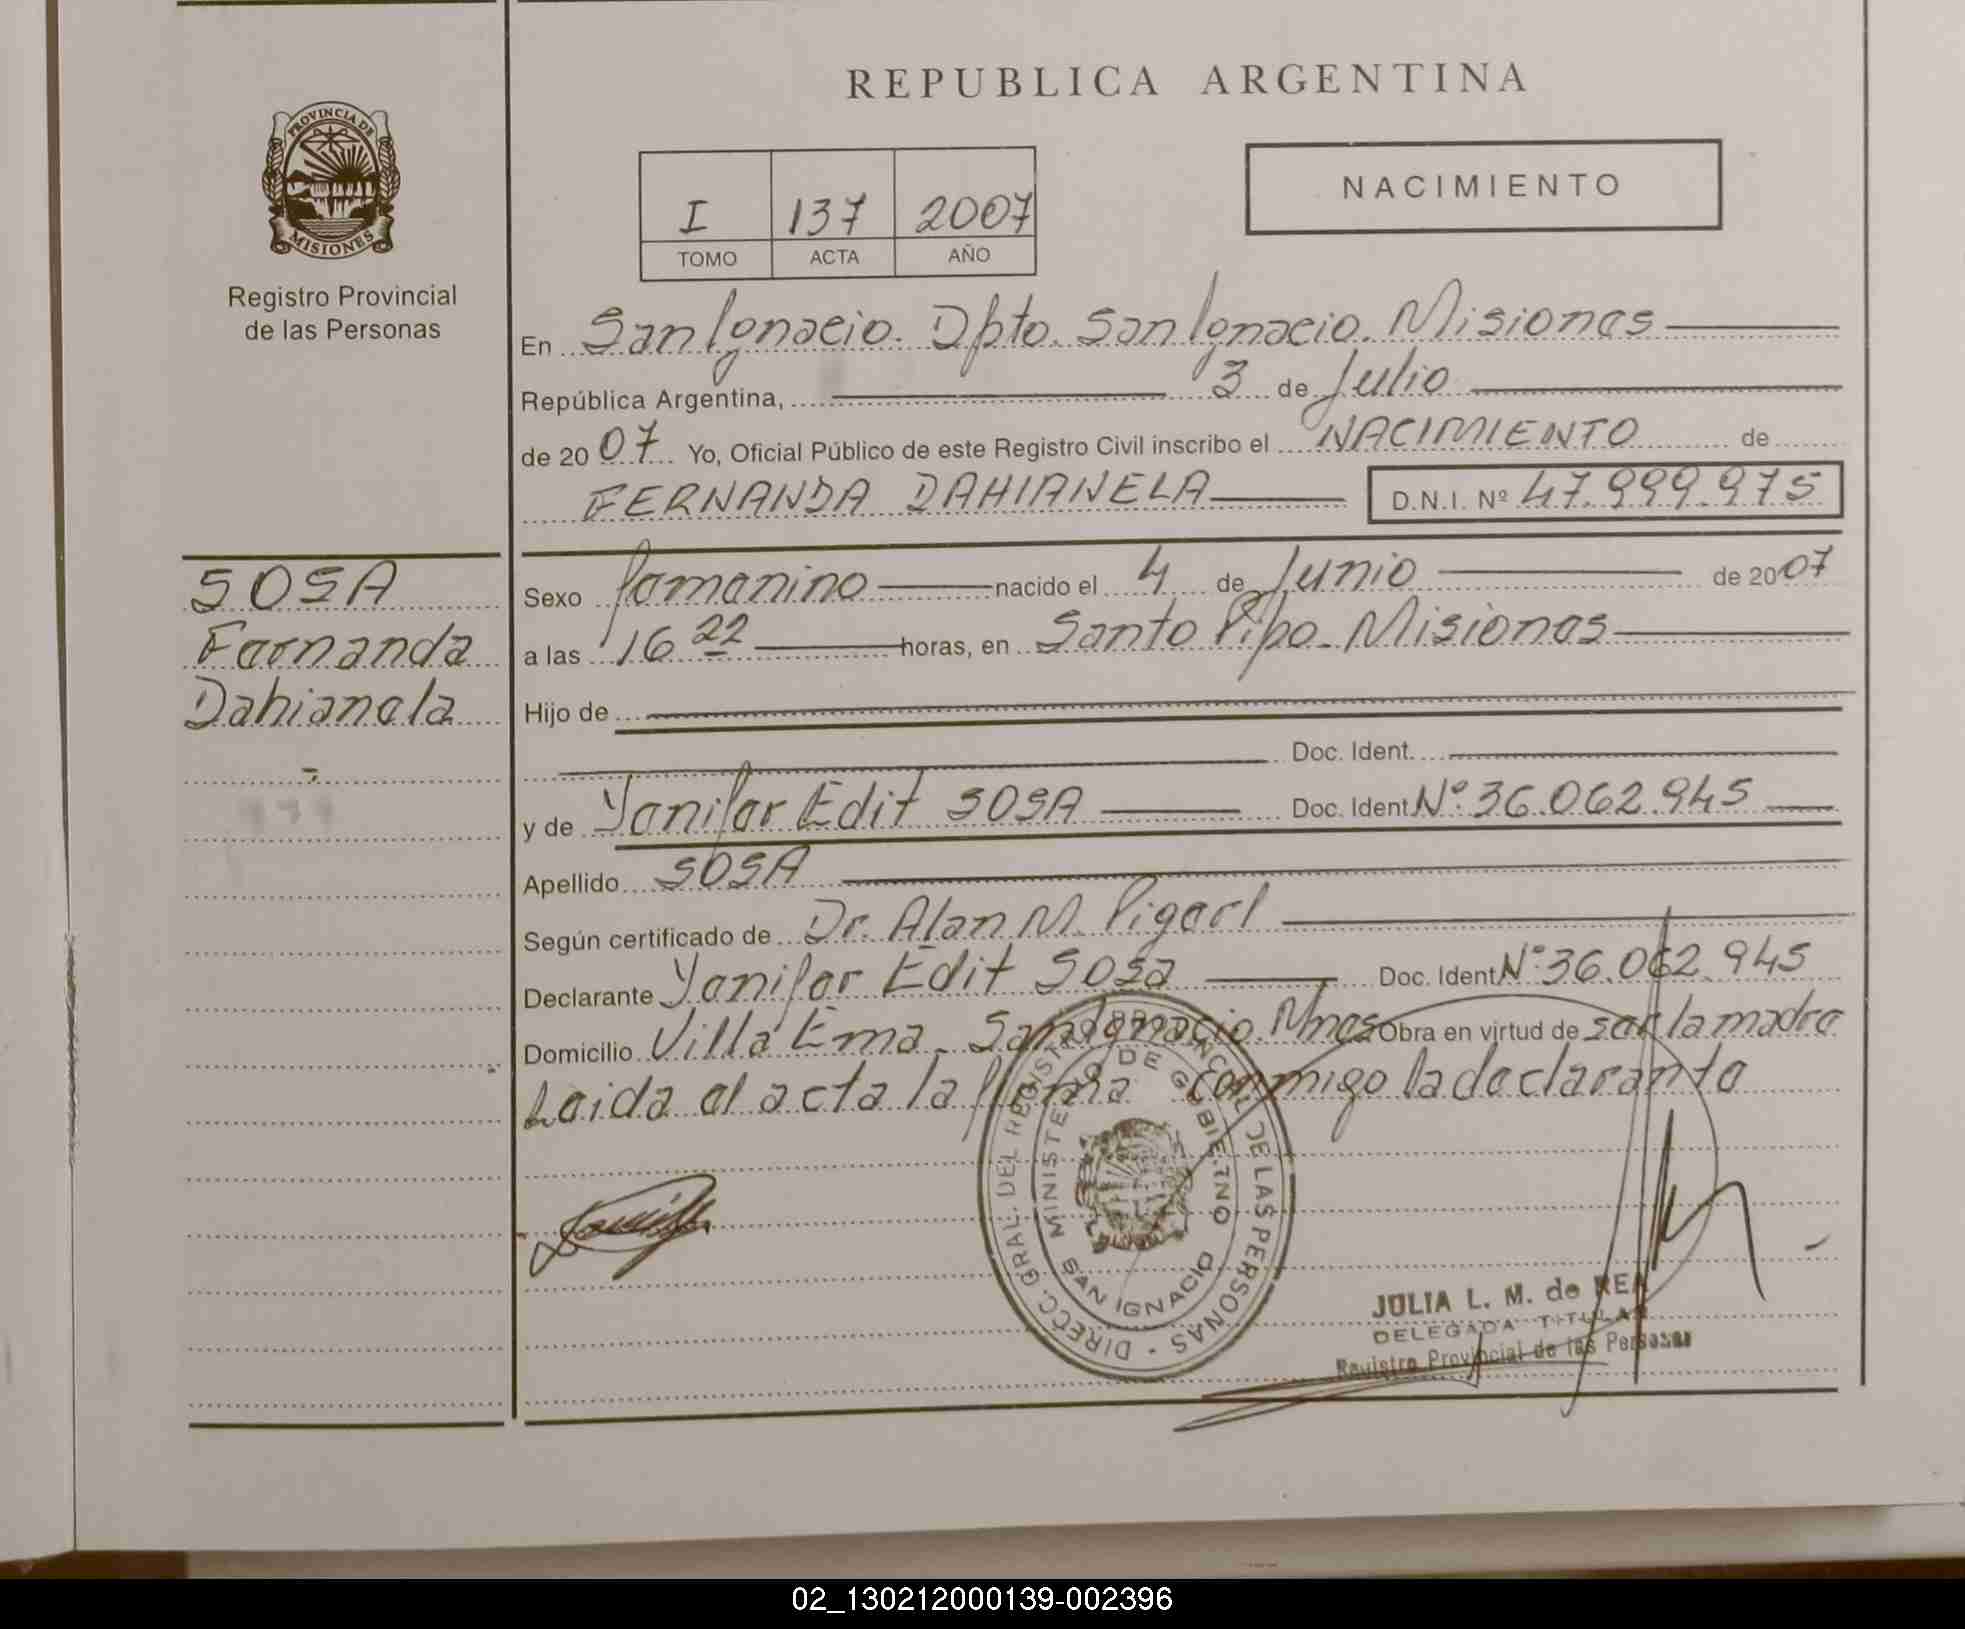 REPUBLICA ARGENTINA
PROVINCIA DE
MISIONES
Registro Provincial
de las Personas
I 137 2007
TOMO ACTA AÑO
NACIMIENTO
En San Ignacio. Dpto. San Ignacio. Misiones
República Argentina, 3 de Julio
de 2007 Yo, Oficial Público de este Registro Civil inscribo el NACIMIENTO de
FERNANDA DAHIANELA D.N.I. Nº 47.999.975
SOSA
Fernanda
Dahianela
Sexo femenino nacido el 4 de Junio de 2007
a las 16 22 horas, en Santo Pipo. Misiones
Hijo de
Doc. Ident.
y de Yenifer Edit SOSA Doc. Ident. Nº 36.062.945
Apellido SOSA
Según certificado de Dr. Alan M.
Declarante Yenifer Edit Sosa Doc. Ident. Nº 36.062.945
Domicilio Villa Ema. San Ignacio. Mnes Obra en virtud de ser la madre
Leida el acta la firma conmigo la declarante
DIREC. GRAL. DEL REGISTRO PROVINCIAL DE LAS PERSONAS -
MINISTERIO DE GOBIERNO
SAN IGNACIO
JULIA L. M. de REA
DELEGADA TITULAR
Registro Provincial de las Personas
02_130212000139-002396